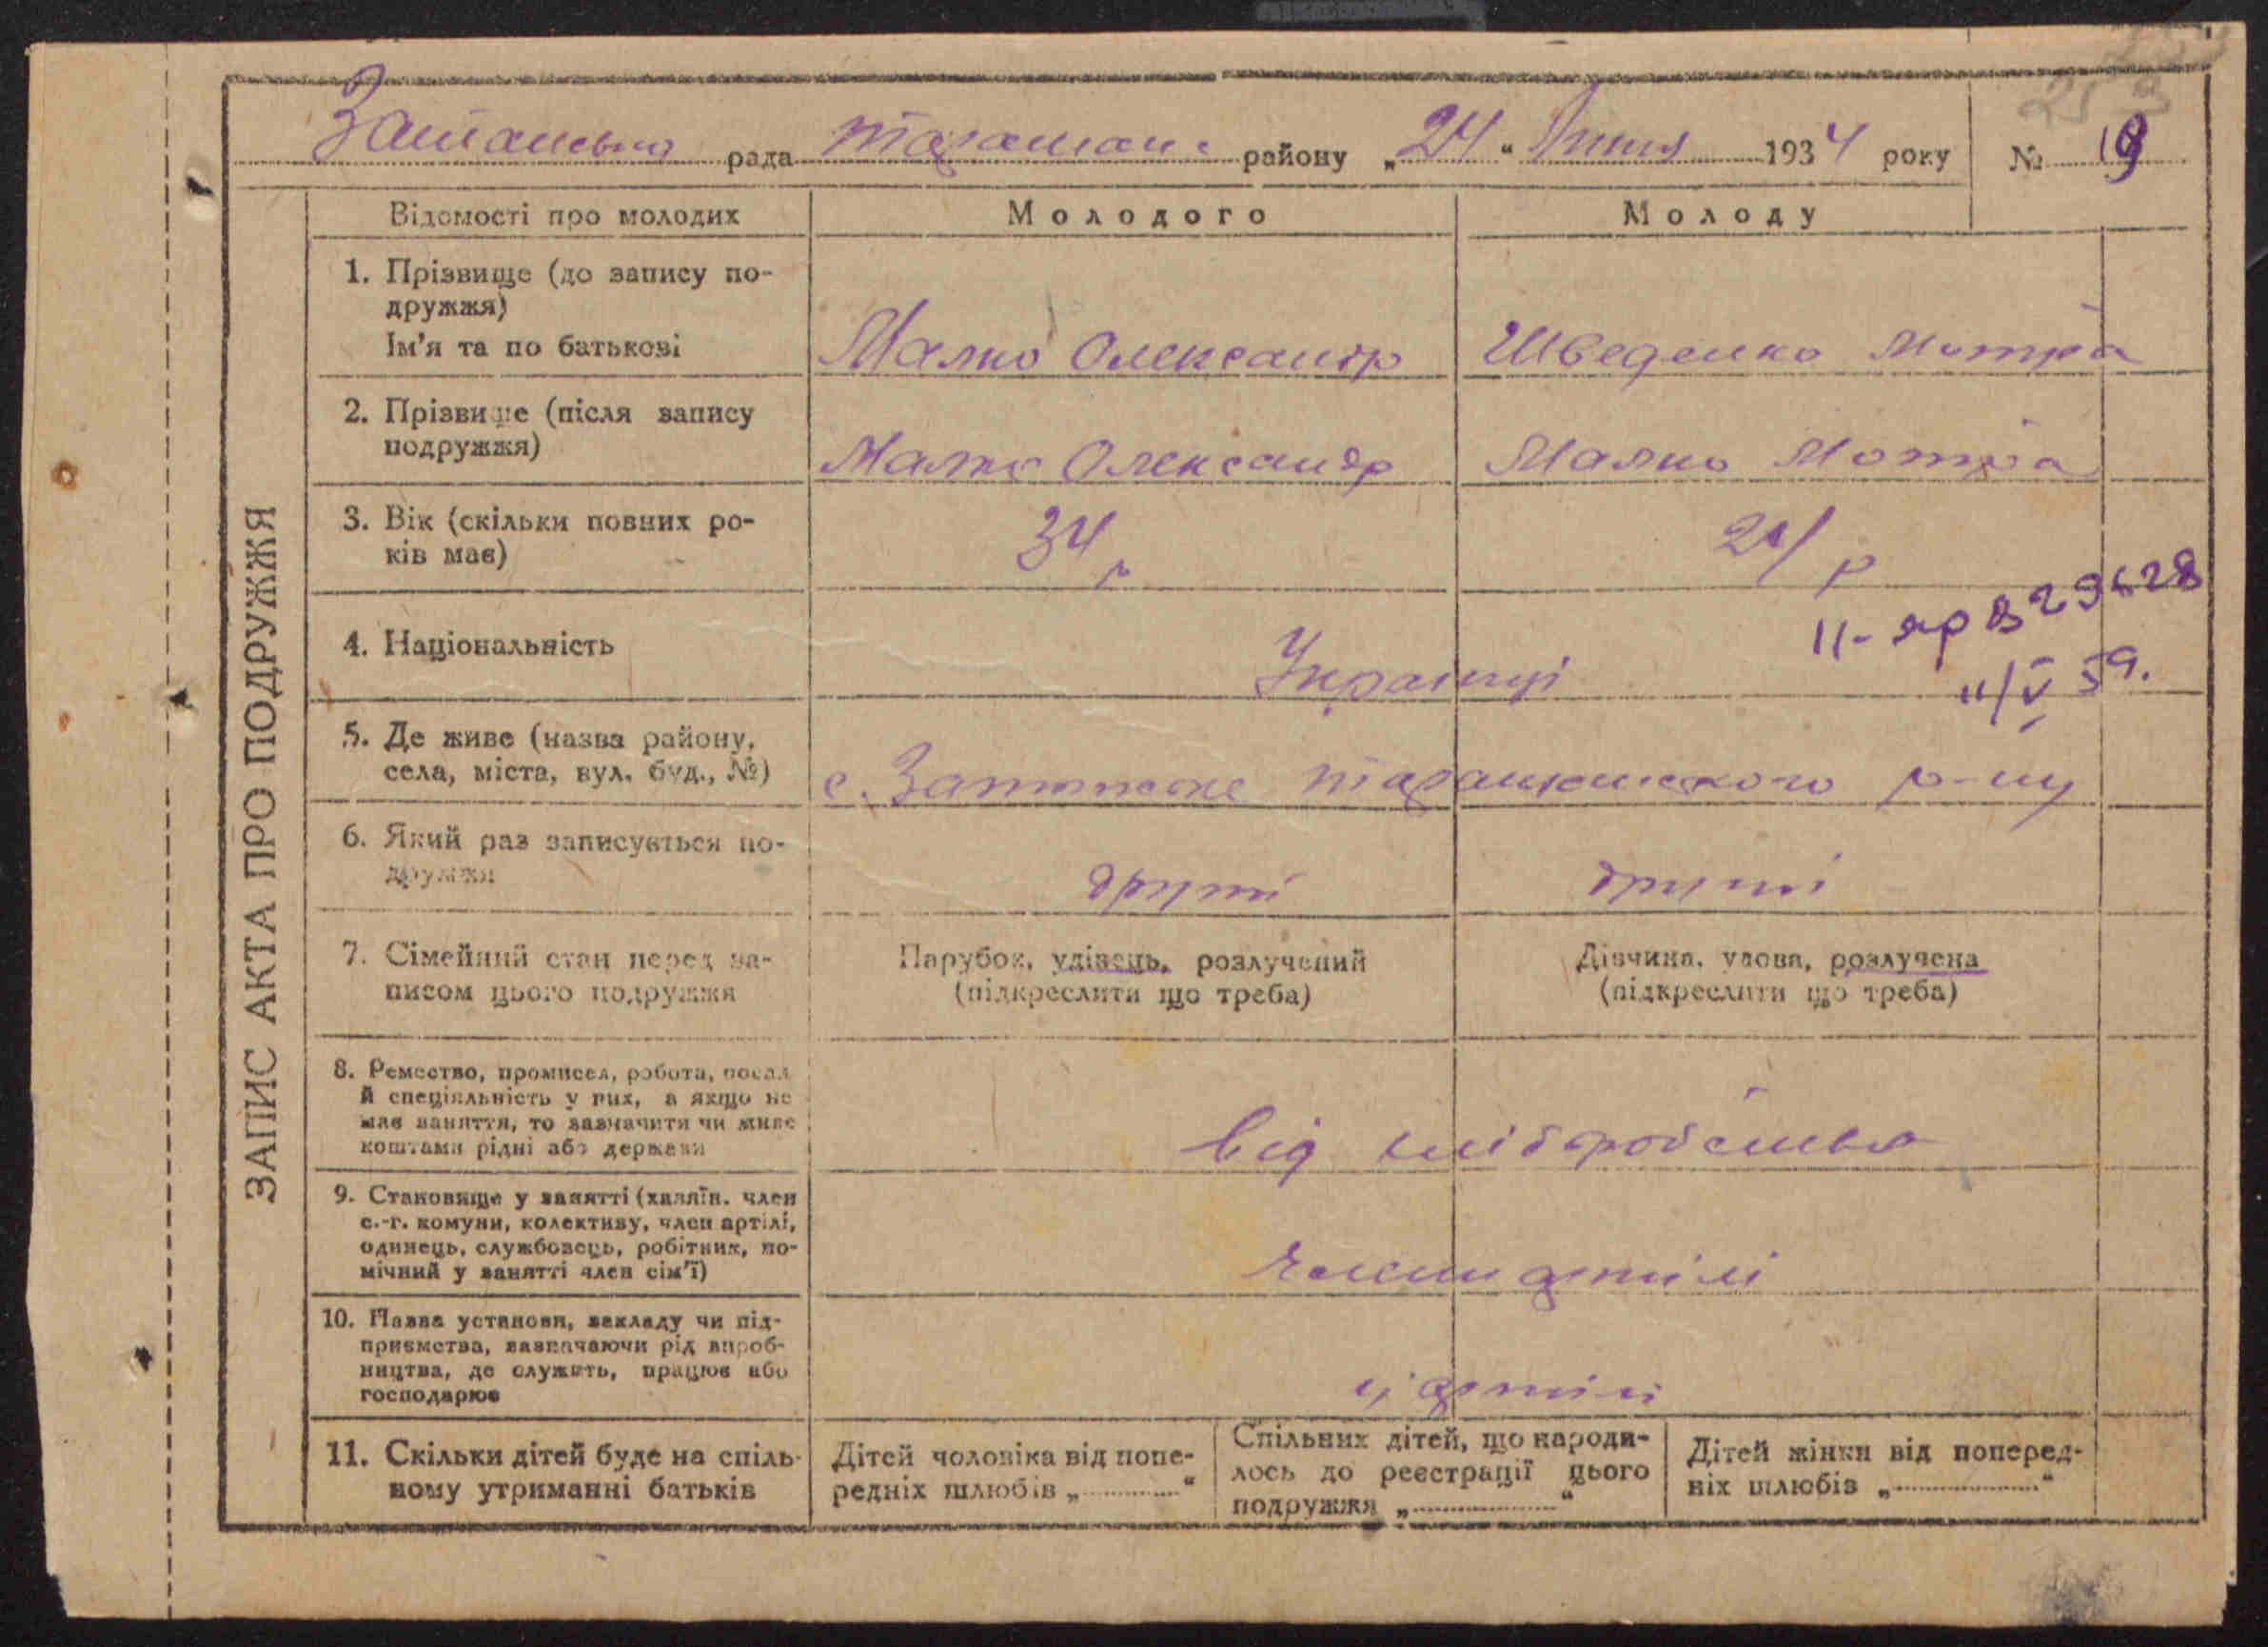 рада района „24“ 1934 року № 19
ЗАПИС АКТА ПРО ПОДРУЖЖЯ
Відомості про молодих
Молодого
Молоду
1. Прізвище (до запису по-
дружжя)
Ім'я та по батькові
Малко Олександр
Шведенко Мотря
2. Прізвище (після запису
подружжя)
Малко Олександр
Малко Мотря
3. Вік (скільки повних ро-
ків має)
34 р
4. Національність
Українці
11/V 59.
5. Де живе (назва району,
села, міста, вул. буд., №)
с. р-ну
6. Який раз записується по-
дружжя
другий
другий
7. Сімейний стан перед за-
писом цього подружжя
Парубок, удівець, розлучений
(підкреслити що треба)
Дівчина, удова, розлучена
(підкреслити що треба)
8. Ремество, промисел, робота, посад
й спеціяльність у них, а якщо не
має заняття, то зазначити чи живе
коштами рідні або держави
від хліборобства
9. Становище у занятті (хазяїн, член
с.-г. комуни, колективу, член артілі,
одинець, службовець, робітник, по-
мічний у занятті член сім'ї)
члени артілі
10. Назва установи, закладу чи під-
приємства, зазначаючи рід вироб-
ництва, де служить, працює або
господарює
у артілі
11. Скільки дітей буде на спіль-
ному утриманні батьків
Дітей чоловіка від попе-
редніх шлюбів „ “
Спільних дітей, що народи-
лось до реєстрації цього
подружжя „ “
Дітей жінки від поперед-
ніх шлюбів „ “